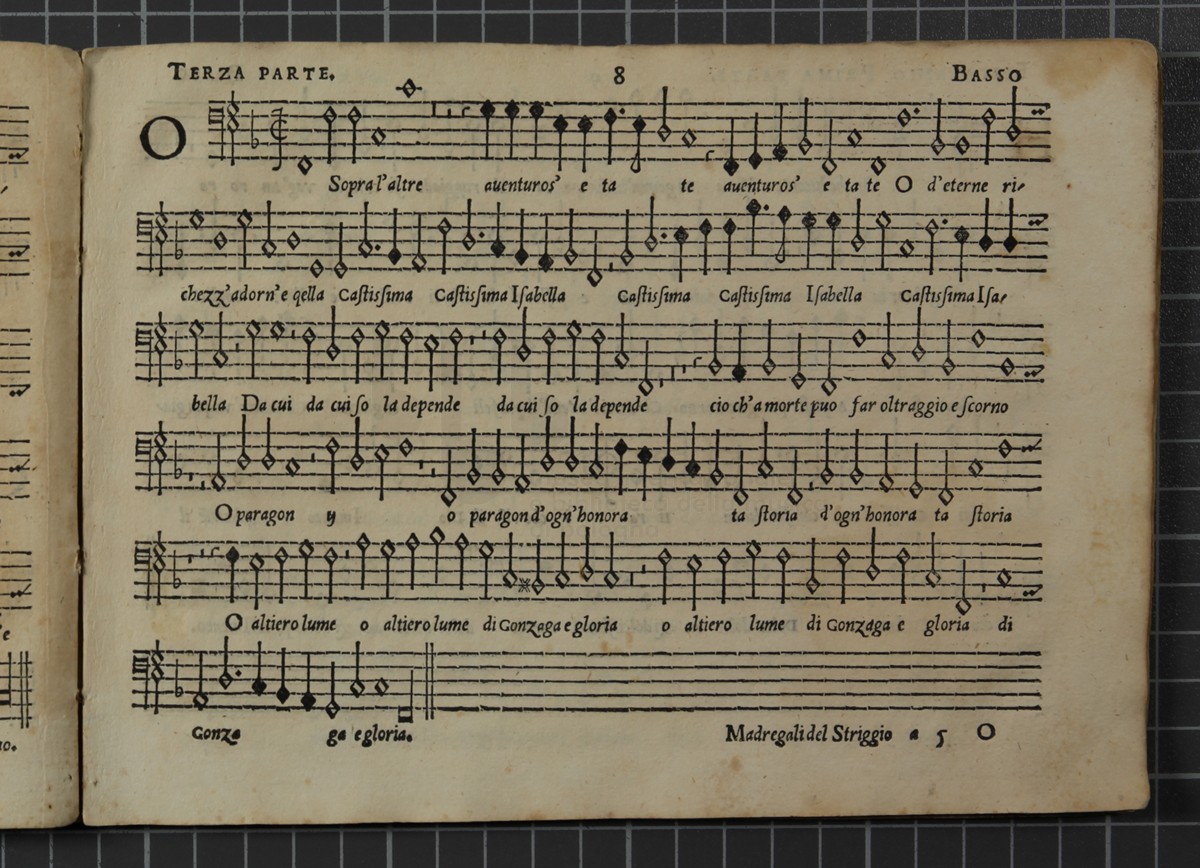 TERZA PARTE. 8 BASSO
O Sopra l'altre auenturos' e ta te auenturos' e ta te O d'eterne ri-
chezz'adorn'e qella Castissima Castissima Isabella Castissima Castissima Isabella Castissima Isa-
bella Da cui da cui so la depende da cui so la depende cio ch'a morte puo far oltraggio e scorno
O paragon y o paragon d'ogn'honora ta storia d'ogn'honora ta storia
O altiero lume o altiero lume di Gonzaga e gloria o altiero lume di Gonzaga e gloria di
Gonza ga e gloria.
Madregali del Striggio a 5 O